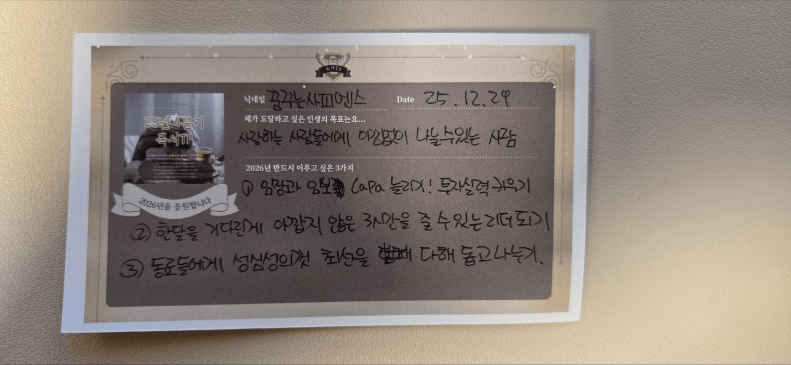 독서TF
25년 4분기
독서TF
2026년을 응원합니다
닉네임 꿈꾸는사피엔스 Date 25.12.29
제가 도달하고 싶은 인생의 목표는요...
사랑하는 사람들에게 아낌없이 나눌 수 있는 사람
2026년 반드시 이루고 싶은 3가지
① 임장과 임보 Capa 늘리기! 투자실력 키우기
② 한달을 기다린게 아깝지 않은 3시간을 줄 수 있는 리더 되기
③ 동료들에게 성심성의껏 최선을 다해 돕고 나누기.